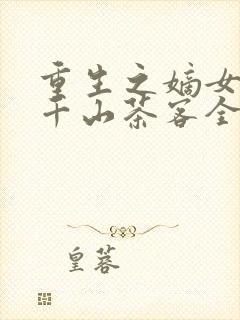 重生之嫡女
千山茶客全
皇蓉